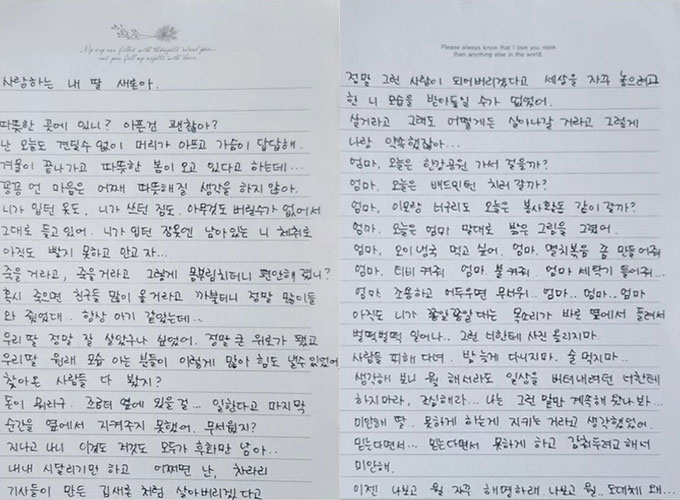 My day are filled with thoughts about you
and you fill my nights with love.
사랑하는 내 딸 새론아.
따뜻한 곳에 있니? 아픈건 괜찮아?
난 오늘도 견딜수 없이 머리가 아프고 가슴이 답답해.
겨울이 끝나가고 따뜻한 봄이 오고 있다고 하는데...
꽁꽁 언 마음은 어째 따뜻해질 생각을 하지 않아.
니가 입던 옷도, 니가 쓰던 짐도. 아무것도 버릴수가 없어서
그대로 들고 있어. 니가 입던 잠옷엔 남아있는 니 체취로
아직도 빨지 못하고 안고 자...
죽을 거라고, 죽을거라고 그렇게 몸부림치더니 편안해 졌니?
혹시 죽으면 친구들 많이 올 거라고 까불더니 정말 많이들
와 줬었다. 항상 아기 같았는데...
우리 딸 정말 잘 살았구나 싶었어. 정말 큰 위로가 됐고
우리딸 원래 모습 아는 분들이 이렇게 많아 힘도 낼수 있었어
찾아온 사람들 다 봤지?
돈이 뭐라구. 조금더 옆에 있을 걸... 일한다고 마지막
순간을 옆에서 지켜주지 못했어. 무서웠지?
지나고 나니 이것도 저것도 모두가 후회만 남아..
내내 시달리기만 하고 어쩌면 난, 차라리
기사들이 만든 김새론 처럼 살아버리겠다고
Please always know that I love you more
than anything else in the world.
정말 그런 사람이 되어버리겠다고 세상을 자꾸 놓으려고
한 니 모습을 받아들일 수가 없었어.
살거라고 그래도 어떻게든 살아나갈 거라고 그렇게
나랑 약속했잖아...
엄마, 오늘은 한강공원 가서 걸을까?
엄마. 오늘은 배드민턴 치러 갈까?
엄마, 이모랑 너구리도 오늘은 봉사활동 같이 갈까?
엄마. 오늘은 엄마 말대로 밝은 그림을 그렸어.
엄마, 오이냉국 먹고 싶어. 엄마. 멸치볶음 좀 만들어줘
엄마. 티비 켜줘 엄마 불 켜줘. 엄마 세탁기 돌려줘...
엄마. 조용하고 어두우면 무서워.. 엄마.. 엄마.. 엄마
아직도 니가 쫑알쫑알 대는 목소리가 바로 옆에서 들려서
벌떡벌떡 일어나.. 그런 너한테 사진 올리지마.
사람들 피해 다녀. 밤늦게 다니지마. 술 먹지마..
생각해 보니 뭘 해서라도 일상을 버텨내려던 너한테
하지마라, 조심해라.. 나는 그런 말만 계속해 왔나 봐...
미안해 딸. 못하게 하는게 지키는 거라고 생각했었어.
믿는다면서... 믿는다면서 못하게 하고 감춰두려고 해서
미안해.
이젠 나보고 뭘 자꾸 해명하래 나보고 뭘. 도대체 왜...